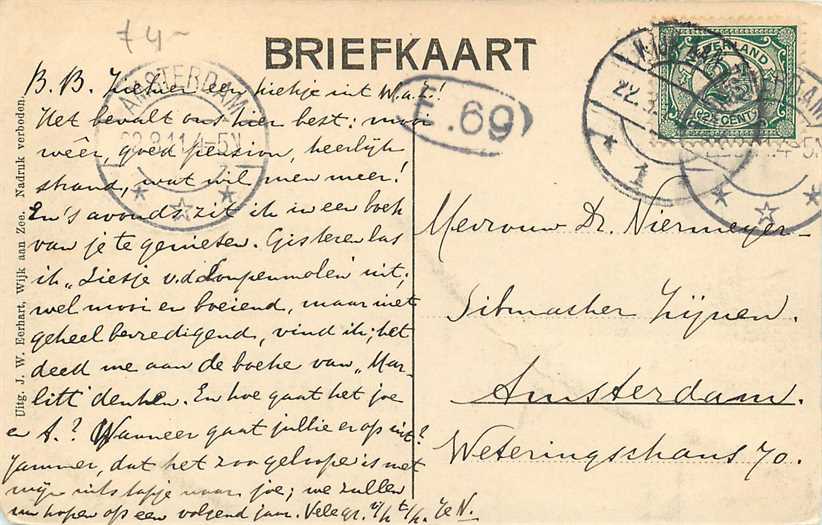 f 4~
BRIEFKAART
B. B. Ziehier een kiekje uit W.a.Z!
Het bevalt ons hier best: mooi
weêr, goed pension, heerlijk
strand, wat wil men meer!
En 's avonds zit ik in een boek
van je te genieten. Gisteren las
ik „Liesje v.d. Loupenmolen" uit;
wel mooi en boeiend, maar niet
geheel bevredigend, vind ik; het
deed me aan de boeken van „Mar-
litt" denken. En hoe gaat het joe
en A.? Wanneer gaat jullie er op uit?
Jammer, dat het zoo geloope is met
mijn uitstapje naar joe; we zullen
nu hopen op een volgend jaar. Vele gr. v/h t/h. Je N.
Uitg. J. W. Eerhart, Wijk aan Zee. Nadruk verboden.
AMSTERDAM
22.8.11.4-5N
E.69
NEDERLAND
2½ CENT
WIJK AAN ZEE
22.8
1
AMSTERDAM
22.8.11.4-5N
Mevrouw Dr. Niermeyer-
Sitmacher Zijnen.
Amsterdam.
Weteringschans 70.